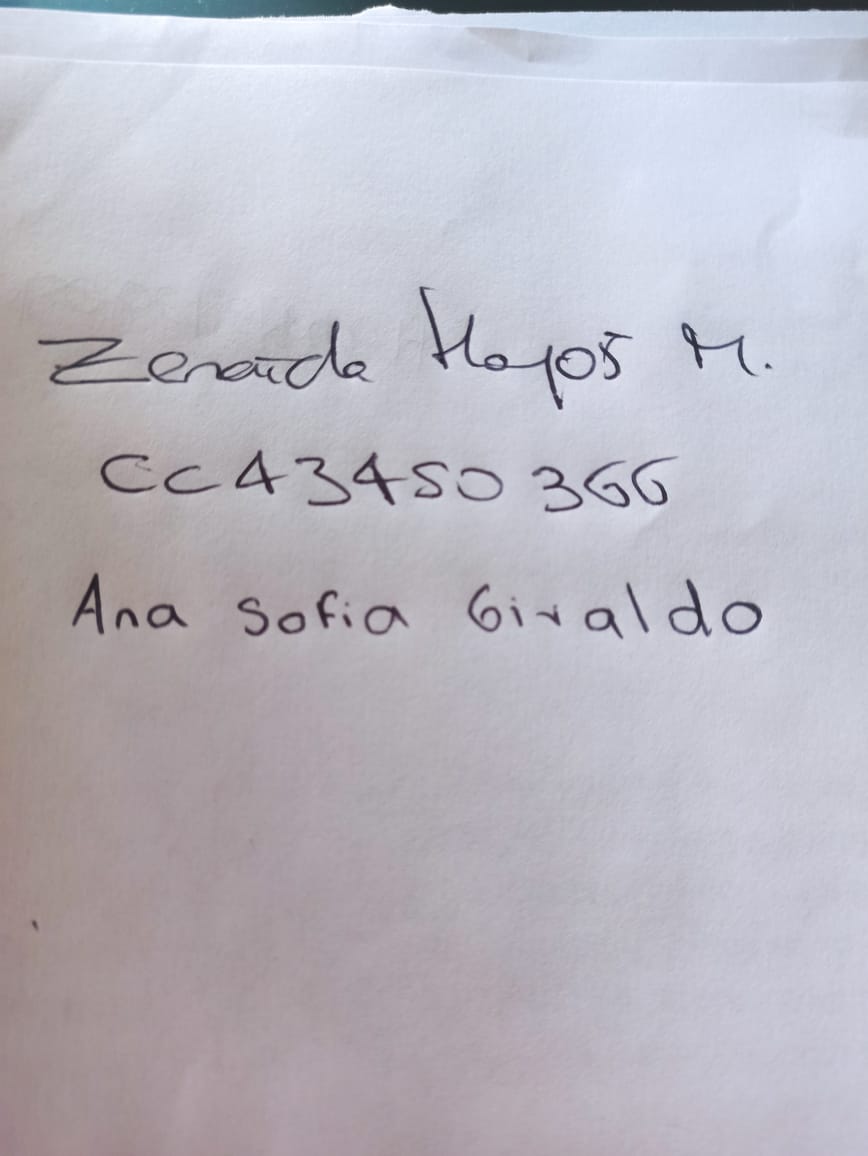 Zenaida Hoyos M.
CC 43450366
Ana Sofia Giraldo